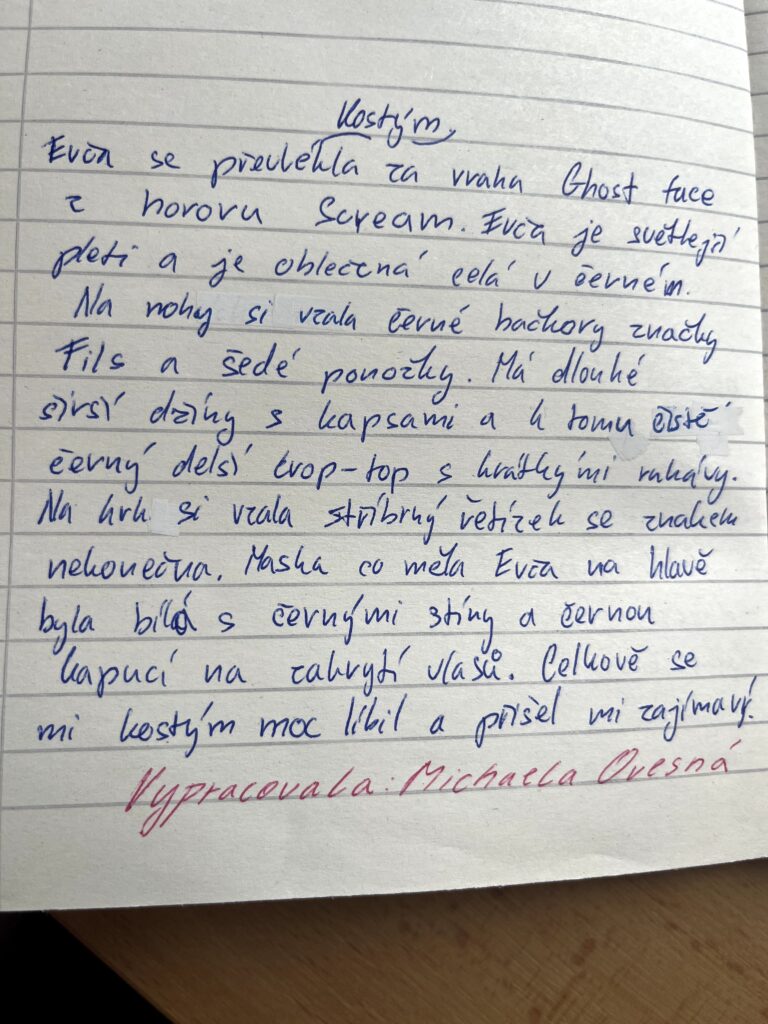 Kostým
Evča se převlékla za vraha Ghost face
z hororu Scream. Evča je světlejší
pleti a je oblečená celá v černém.
Na nohy si vzala černé bačkory značky
Fils a šedé ponožky. Má dlouhé
širší džíny s kapsami a k tomu čistě
černý delší crop-top s krátkými rukávy.
Na krk si vzala stříbrný řetízek se znakem
nekonečna. Maska co měla Evča na hlavě
byla bílá s černými stíny a černou
kapucí na zakrytí vlasů. Celkově se
mi kostým moc líbil a přišel mi zajímavý.
Vypracovala: Michaela Ovesná